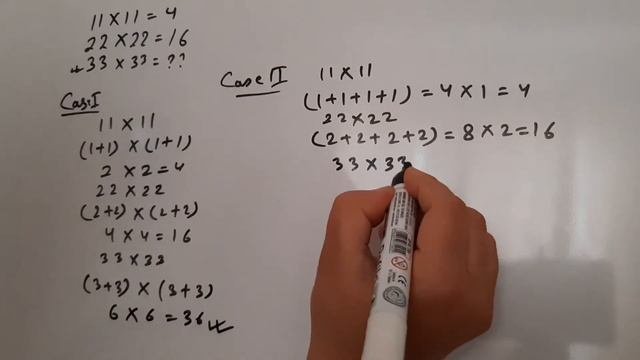 11 X 11 = 4
22 X 22 = 16
33 X 33 = ??
Case I
11 X 11
(1+1) X (1+1)
2 X 2 = 4
22 X 22
(2+2) X (2+2)
4 X 4 = 16
33 X 33
(3+3) X (3+3)
6 X 6 = 36
Case II
11 X 11
(1+1+1+1) = 4 X 1 = 4
22 X 22
(2+2+2+2) = 8 X 2 = 16
33 X 33